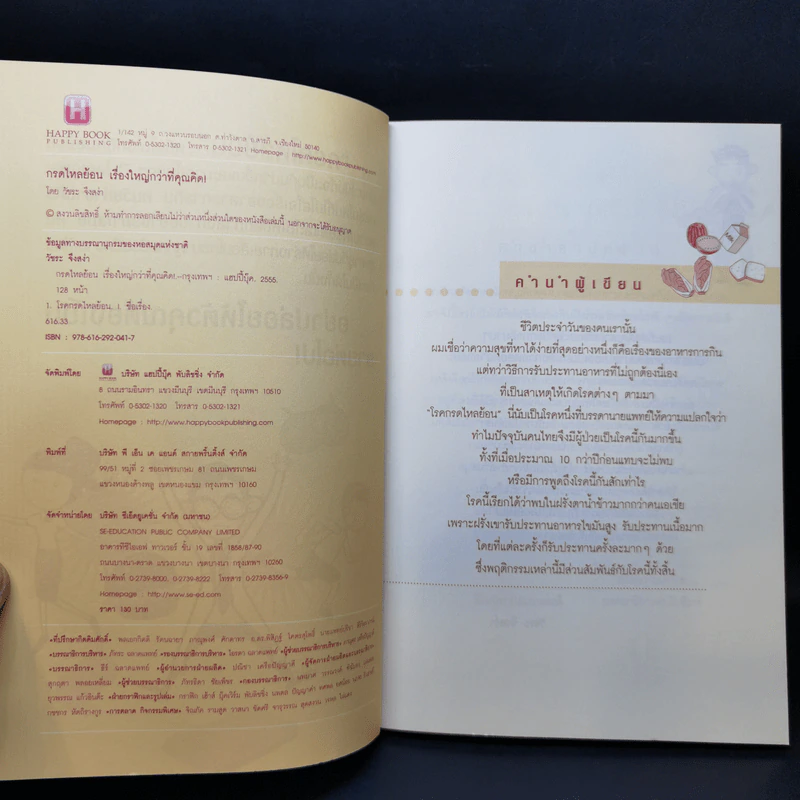 HAPPY BOOK
PUBLISHING
1/142 หมู่ 9 ถ.วงแหวนรอบนอก ต.ท่าวังตาล อ.สารภี จ.เชียงใหม่ 50140
โทรศัพท์ 0-5302-1320 โทรสาร 0-5302-1321 Homepage : http://www.happybookpublishing.com
กรดไหลย้อน เรื่องใหญ่กว่าที่คุณคิด!
โดย วัชระ จึงสง่า
© สงวนลิขสิทธิ์ ห้ามทำการลอกเลียนไม่ว่าส่วนหนึ่งส่วนใดของหนังสือเล่มนี้ นอกจากจะได้รับอนุญาต
ข้อมูลทางบรรณานุกรมของหอสมุดแห่งชาติ
วัชระ จึงสง่า
กรดไหลย้อน เรื่องใหญ่กว่าที่คุณคิด!.--กรุงเทพฯ : แฮปปี้บุ๊ค. 2556.
128 หน้า
1. โรคกรดไหลย้อน. I. ชื่อเรื่อง.
616.33
ISBN : 978-616-292-041-7
จัดพิมพ์โดย บริษัท แฮปปี้บุ๊ค พับลิชชิ่ง จำกัด
8 ถนนรามอินทรา แขวงมีนบุรี เขตมีนบุรี กรุงเทพฯ 10510
โทรศัพท์ 0-5302-1320 โทรสาร 0-5302-1321
Homepage : http://www.happybookpublishing.com
พิมพ์ที่ บริษัท พี เอ็น เค แอนด์ สกายพริ้นติ้งส์ จำกัด
99/51 หมู่ที่ 2 ซอยเพชรเกษม 81 ถนนเพชรเกษม
แขวงหนองค้างพลู เขตหนองแขม กรุงเทพฯ 10160
จัดจำหน่ายโดย บริษัท ซีเอ็ดยูเคชั่น จำกัด (มหาชน)
SE-EDUCATION PUBLIC COMPANY LIMITED
อาคารทีซีไอเอฟ ทาวเวอร์ ชั้น 19 เลขที่ 1858/87-90
ถนนบางนา-ตราด แขวงบางนา เขตบางนา กรุงเทพฯ 10260
โทรศัพท์ 0-2739-8000, 0-2739-8222 โทรสาร 0-2739-8356-9
Homepage : http://www.se-ed.com
ราคา 130 บาท
•ที่ปรึกษากิตติมศักดิ์•
•บรรณาธิการบริหาร• •รองบรรณาธิการบริหาร• •ผู้ช่วยบรรณาธิการบริหาร•
•บรรณาธิการ• ธีร์ ฉลาดแพทย์ •ผู้อำนวยการฝ่ายผลิต•
•ผู้ช่วยบรรณาธิการ• •กองบรรณาธิการ•
•ฝ่ายกราฟิกและรูปเล่ม•
•การตลาด กิจกรรมพิเศษ•
คำนำผู้เขียน
ชีวิตประจำวันของคนเรานั้น
ผมเชื่อว่าความสุขที่หาได้ง่ายที่สุดอย่างหนึ่งก็คือเรื่องของอาหารการกิน
แต่ทว่าวิธีการรับประทานอาหารที่ไม่ถูกต้องนี่เอง
ที่เป็นสาเหตุให้เกิดโรคต่างๆ ตามมา
"โรคกรดไหลย้อน" นี่นับเป็นโรคหนึ่งที่บรรดานายแพทย์ให้ความแปลกใจว่า
ทำไมปัจจุบันคนไทยจึงมีผู้ป่วยเป็นโรคนี้กันมากขึ้น
ทั้งที่เมื่อประมาณ 10 กว่าปีก่อนแทบจะไม่พบ
หรือมีการพูดถึงโรคนี้กันสักเท่าไร
โรคนี้เรียกได้ว่าพบในฝรั่งตาน้ำข้าวมากกว่าคนเอเชีย
เพราะฝรั่งเขารับประทานอาหารไขมันสูง รับประทานเนื้อมาก
โดยที่แต่ละครั้งก็รับประทานครั้งละมากๆ ด้วย
ซึ่งพฤติกรรมเหล่านี้มีส่วนสัมพันธ์กับโรคนี้ทั้งสิ้น